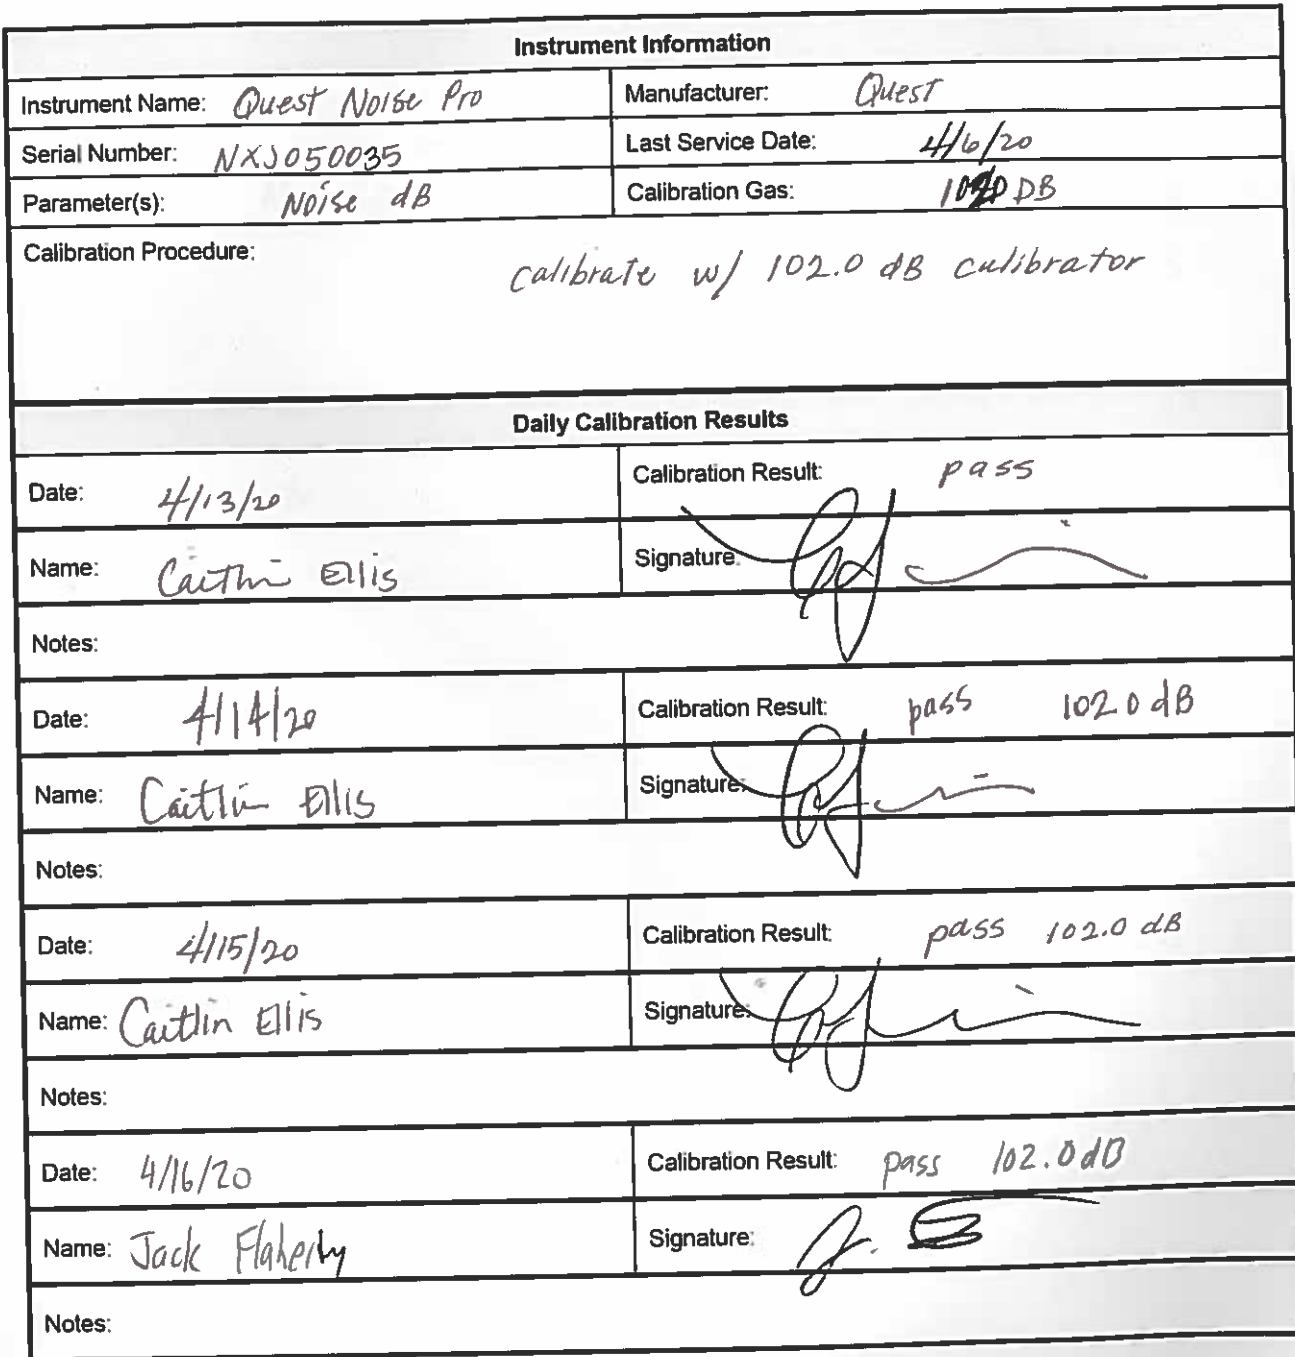 Instrument Information
Instrument Name: Quest Noise Pro
Manufacturer: Quest
Serial Number: NXJ050035
Last Service Date: 4/6/20
Parameter(s): Noise dB
Calibration Gas: DB
Calibration Procedure:
Calibrate w/ 102.0 dB calibrator
Daily Calibration Results
Date: 4/13/20
Calibration Result: pass
Name: Caitlin Ellis
Signature:
Notes:
Date: 4/14/20
Calibration Result: pass 102.0 dB
Name: Caitlin Ellis
Signature:
Notes:
Date: 4/15/20
Calibration Result: pass 102.0 dB
Name: Caitlin Ellis
Signature:
Notes:
Date: 4/16/20
Calibration Result: pass 102.0 dB
Name: Jack Flaherty
Signature:
Notes: